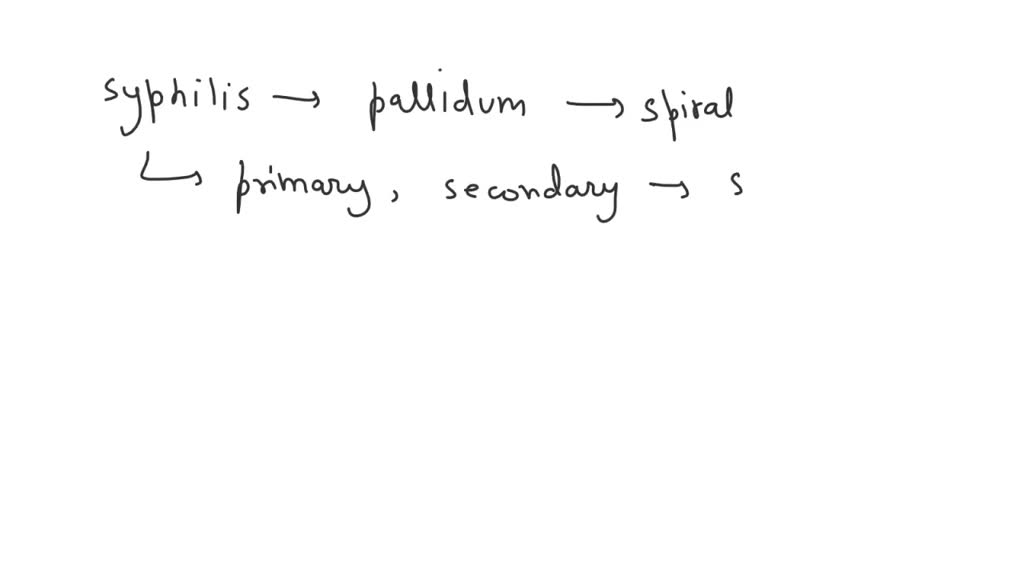 syphilis → pallidum → spiral
↳ primary, secondary → s